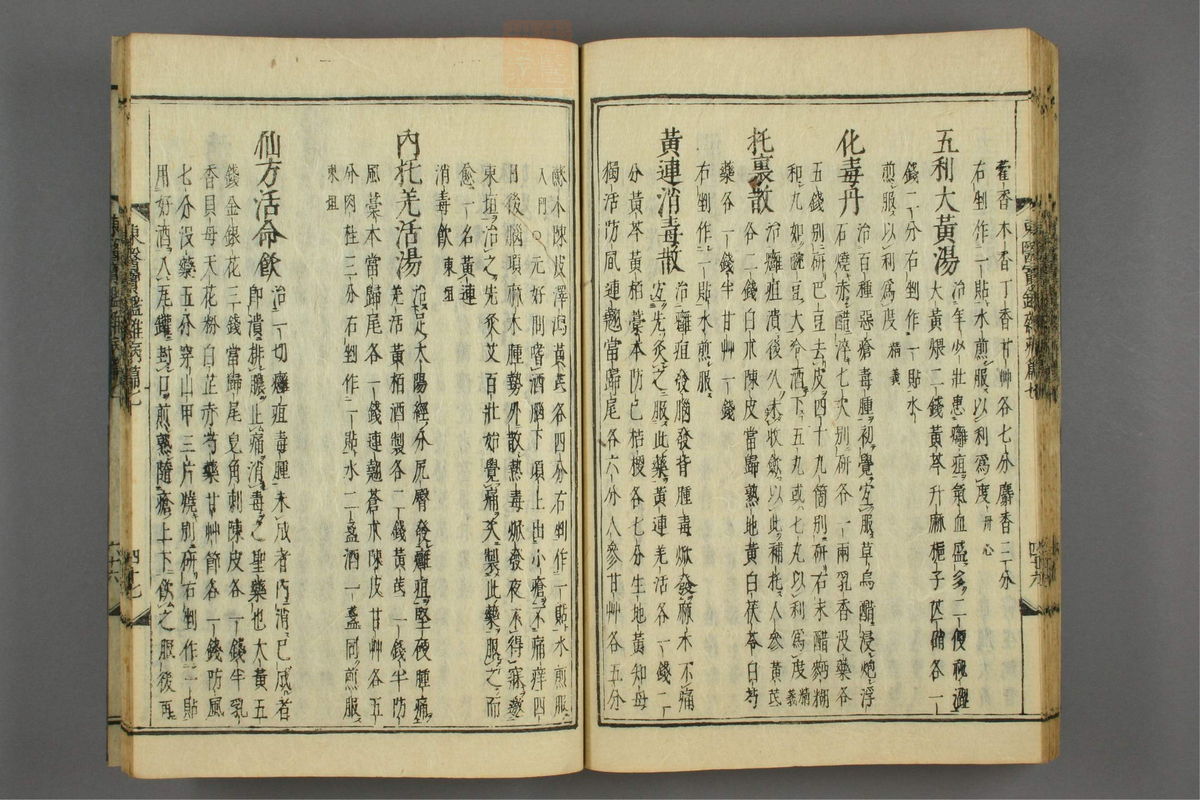 藿香木香丁香甘艸各七分麝香三分
右剉作一貼水煎服以利爲度 丹心
五利大黃湯 治年少壯患癰疽氣血盛多二便秘澁
大黃煨二錢黃芩升麻梔子芒硝各一
錢二分右剉作一貼水
煎服以利爲度 精義
化毒丹 治百種惡瘡毒腫初覺宜服草烏醋浸炮浮
石燒赤醋淬七次別研各一兩乳香沒藥各
五錢別研巴豆去皮四十九箇別研右末醋麪糊
和丸如豌豆大冷酒下五丸或七丸以利爲度 精義
托裏散 治癰疽潰後久未收歛以此補托人參黃芪
各二錢白朮陳皮當歸熟地黃白茯苓白芍
藥各一錢半甘艸一錢
右剉作一貼水煎服
黃連消毒散 治癰疽發腦發背腫毒焮發麻木不痛
宜先灸之服此藥黃連羌活各一錢二
分黃芩黃柏藁本防己桔梗各七分生地黃知母
獨活防風連翹當歸尾各六分人參甘艸各五分
蘇木陳皮澤瀉黃芪各四分右剉作一貼水煎服
入門○元好問嗜酒腦下項上出小瘡不痛痒四
日後腦項麻木腫勢外散熱毒焮發夜不得寐
東垣治之先灸艾百壯始覺痛次製此藥服之而
愈一名黃連
消毒飮 東垣
內托羌活湯 治足太陽經分尻臀發癰疽堅硬腫痛
羌活黃柏酒製各二錢黃芪一錢半防
風藁本當歸尾各一錢連翹蒼朮陳皮甘艸各五
分肉桂三分右剉作一貼水二盞酒一盞同煎服
東垣
仙方活命飮 治一切癰疽毒腫未成者內消已成者
卽潰排膿止痛消毒之聖藥也大黃五
錢金銀花三錢當歸尾皂角刺陳皮各一錢半乳
香貝母天花粉白芷赤芍藥甘艸節各一錢防風
七分沒藥五分穿山甲三片燒別研右剉作一貼
用好酒入瓦罐封口煎熟隨瘡上下飮之服後再
東醫寶鑑雜病篇七
東醫寶鑑雜病篇七